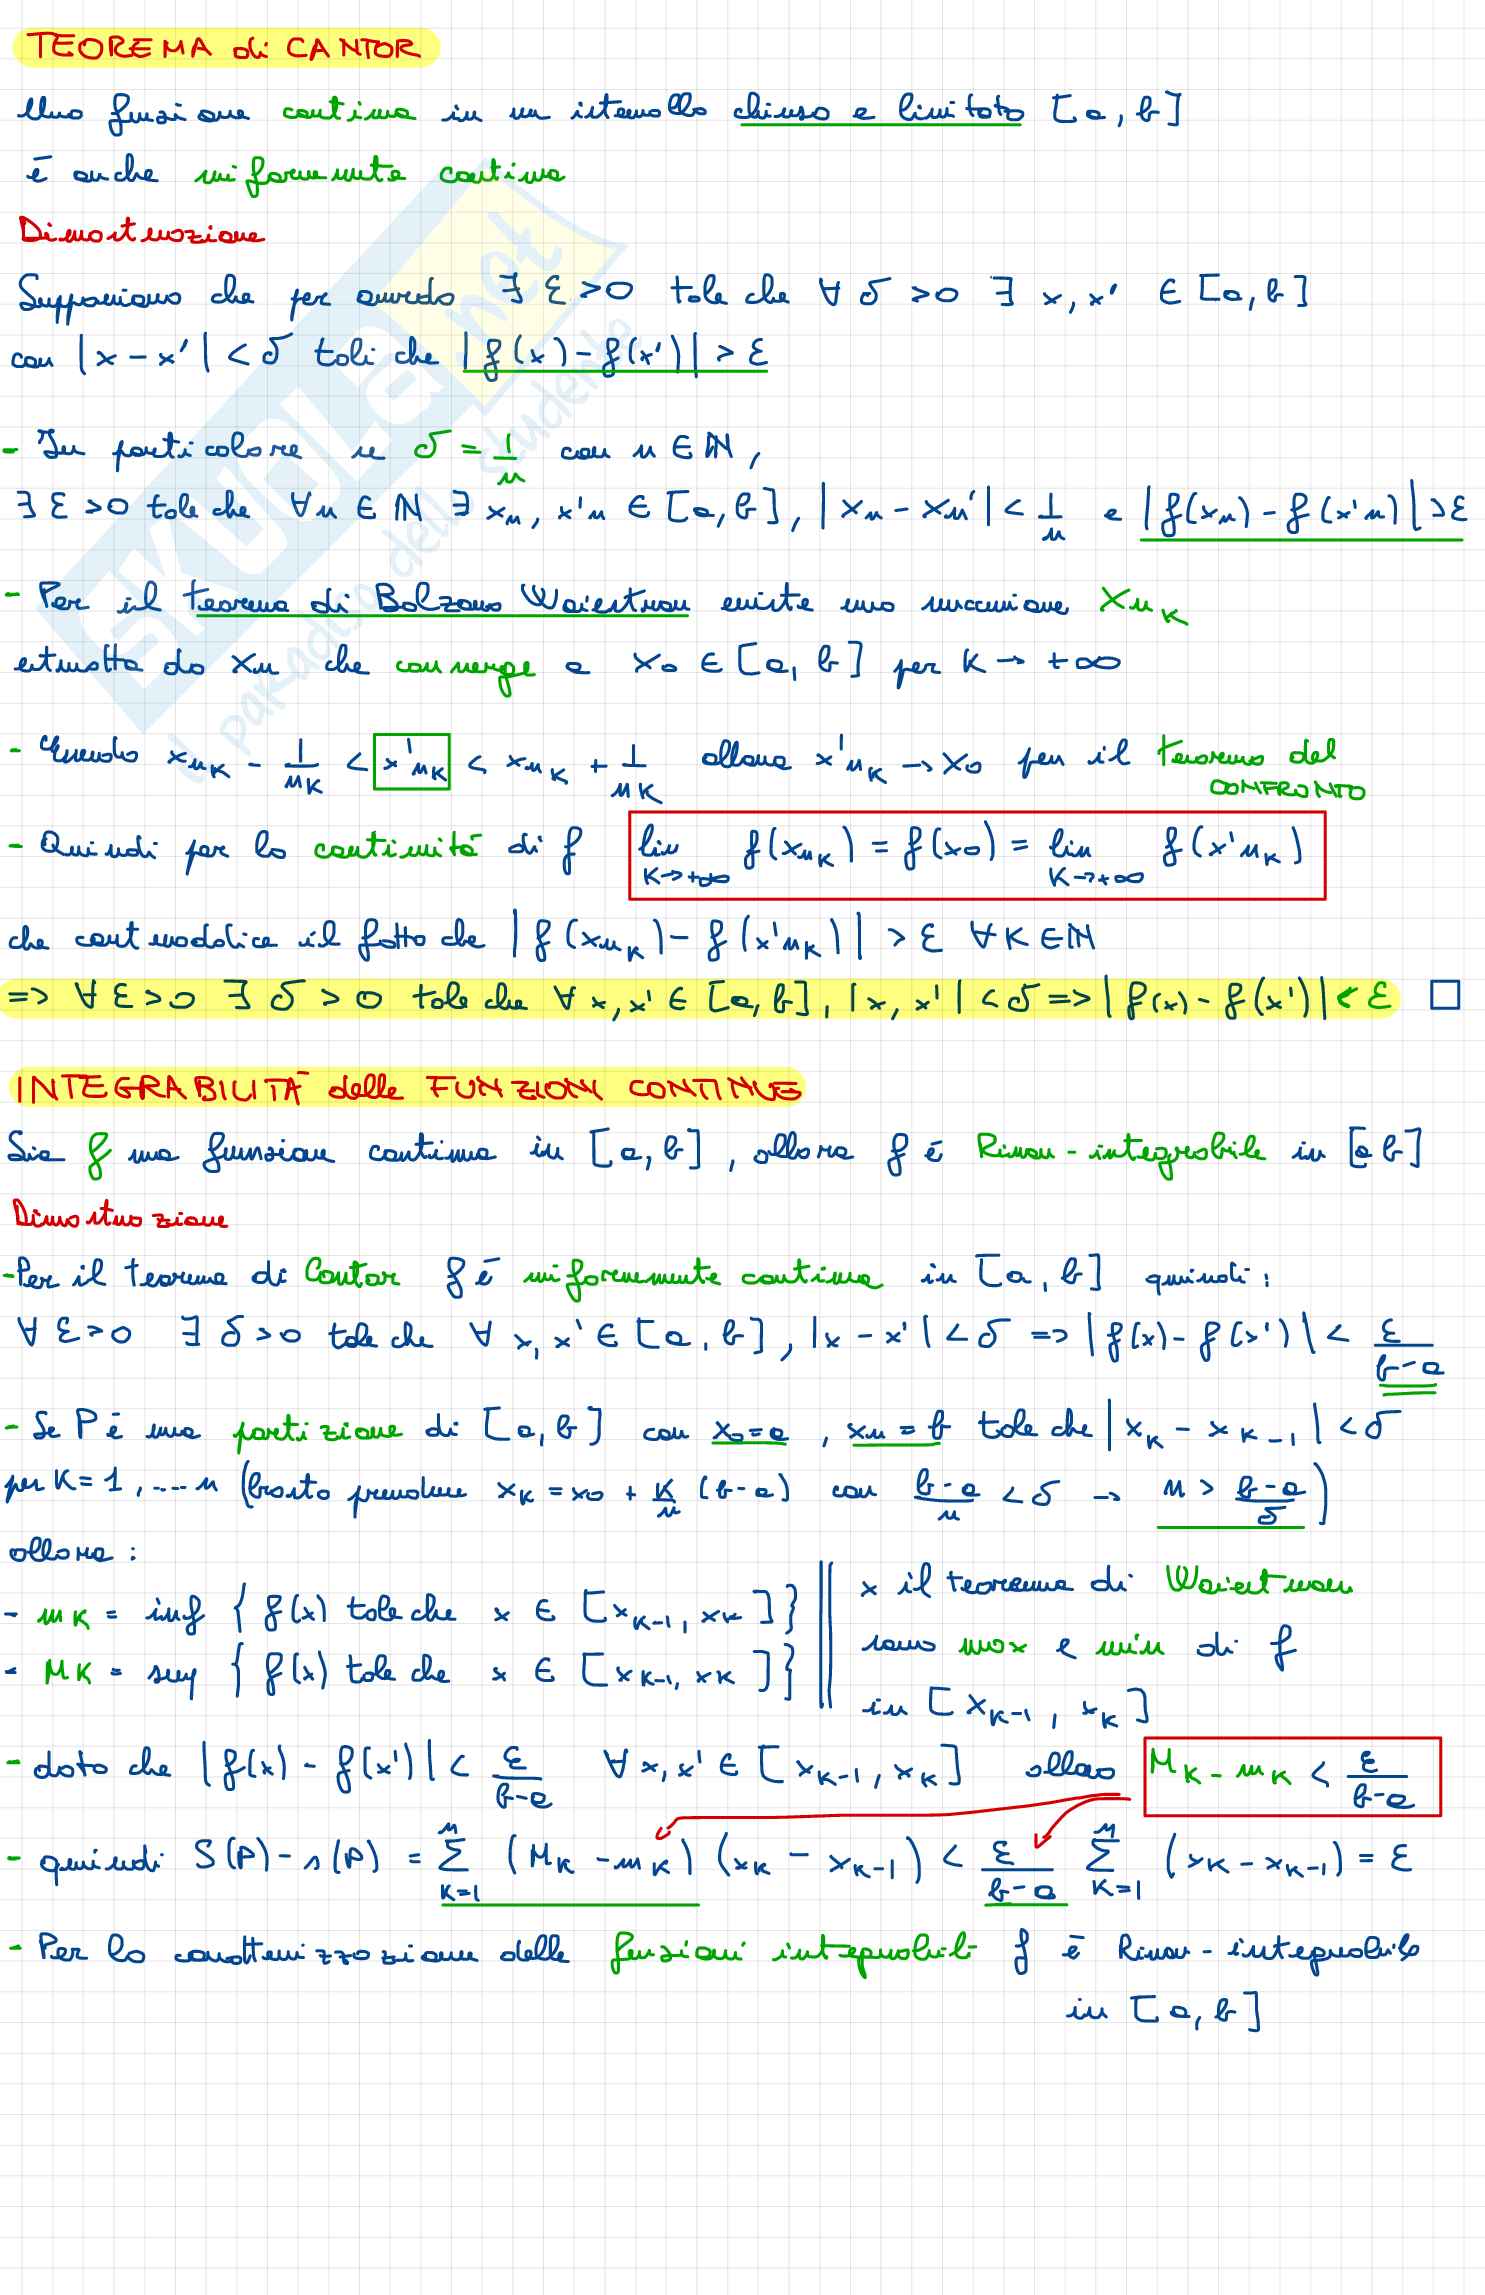 TEOREMA di CANTOR
Una funzione continua in un intervallo chiuso e limitato [a, b]
è anche uniformemente continua
Dimostrazione
Supponiamo che per assurdo ∃ ε > 0 tale che ∀ δ > 0 ∃ x, x' ∈ [a, b]
con |x - x'| < δ tali che |f(x) - f(x')| > ε
- In particolare se δ = 1/n con n ∈ N,
∃ ε > 0 tale che ∀ n ∈ N ∃ xn, x'n ∈ [a, b], |xn - xn'| < 1/n e |f(xn) - f(x'n)| > ε
- Per il teorema di Bolzano Weierstrass esiste una successione xnK
estratta da xn che converge a x0 ∈ [a, b] per K → +∞
- Essendo xnK - 1/nK < x'nK < xnK + 1/nK allora x'nK → x0 per il teorema del
CONFRONTO
- Quindi per la continuità di f lim K→+∞ f(xnK) = f(x0) = lim K→+∞ f(x'nK)
che contraddice il fatto che |f(xnK) - f(x'nK)| > ε ∀ K ∈ N
=> ∀ ε > 0 ∃ δ > 0 tale che ∀ x, x' ∈ [a, b], |x, x'| < δ => |f(x) - f(x')| < ε □
INTEGRABILITÀ delle FUNZIONI CONTINUE
Sia f una funzione continua in [a, b], allora f è Riman-integrabile in [a b]
Dimostrazione
- Per il teorema di Cantor f è uniformemente continua in [a, b] quindi:
∀ ε > 0 ∃ δ > 0 tale che ∀ x, x' ∈ [a, b], |x - x'| < δ => |f(x) - f(x')| < ε/(b-a)
- Se P è una partizione di [a, b] con x0 = a, xn = b tale che |xK - xK-1| < δ
per K = 1, .... n (basta prendere xK = x0 + K/n (b-a) con (b-a)/n < δ → n > (b-a)/δ)
allora:
- mK = inf { f(x) tale che x ∈ [xK-1, xK] }
- MK = sup { f(x) tale che x ∈ [xK-1, xK] }
x il teorema di Weierstrass
sono max e min di f
in [xK-1, xK]
- dato che |f(x) - f(x')| < ε/(b-a) ∀ x, x' ∈ [xK-1, xK] allora MK - mK < ε/(b-a)
- quindi S(P) - s(P) = Σ K=1 n (MK - mK) (xK - xK-1) < ε/(b-a) Σ K=1 n (xK - xK-1) = ε
- Per la caratterizzazione delle funzioni integrabili f è Riman-integrabile
in [a, b]
SKUOLA.net
il paradiso dello studente